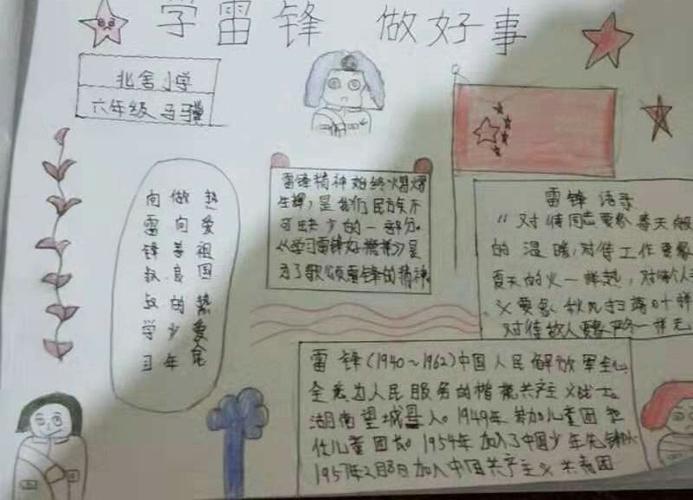 学雷锋 做好事
北舍小学
六年级 马
向做热
雷向爱
锋善祖
叔良国
叔的热
学少爱
习年
雷锋精神始终熠熠
生辉,是我们民族不
可缺少的一部分。
《学习雷锋好榜样》是
为了歌颂雷锋的精神
雷锋语录
"对待同志要象春天般
的温暖,对待工作要象
夏天的火一样热,对待个人
义要象秋风扫落叶样
对待敌人要 一样无
雷锋(1940~1962)中国人民解放军
全意为人民服务的楷模共产主义战士。
湖南望城县人。1949年参加儿童团
任儿童团长。1954年加入了中国少年先锋队
1957年2月8日加入中国共产主义共青团